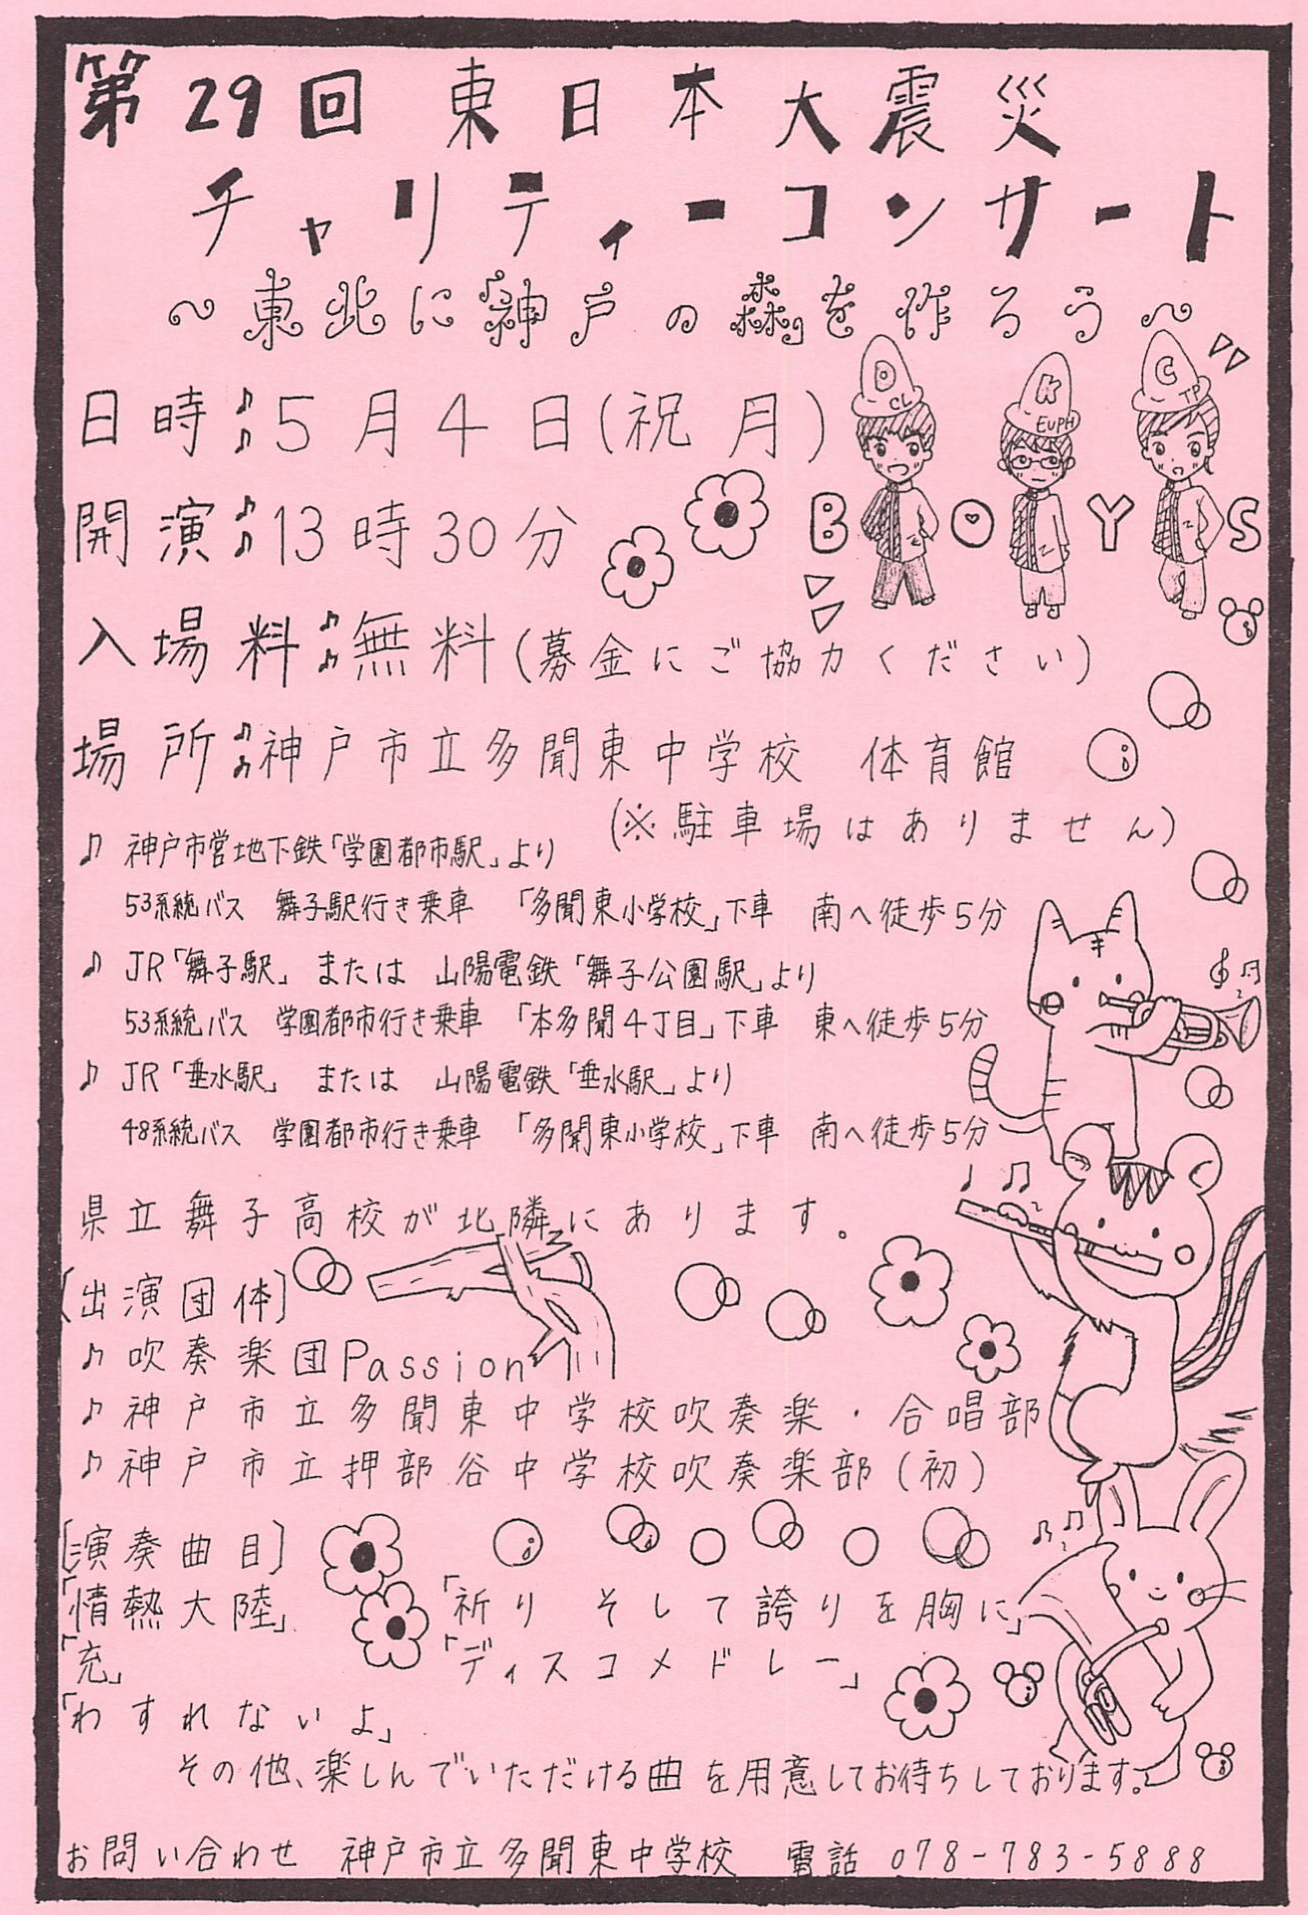 第29回 東日本大震災
チャリティーコンサート
～東北に「神戸の森」を作ろう～
日時 5月4日(祝月)
D CL
K EUPH
C TP
BOYS
開演 13時30分
入場料 無料(募金にご協力ください)
場所 神戸市立多聞東中学校 体育館
(※駐車場はありません)
♪ 神戸市営地下鉄「学園都市駅」より
53系統バス 舞子駅行き乗車 「多聞東小学校」下車 南へ徒歩5分
♪ JR「舞子駅」 または 山陽電鉄「舞子公園駅」より
53系統バス 学園都市行き乗車 「本多聞4丁目」下車 東へ徒歩5分
♪ JR「垂水駅」 または 山陽電鉄「垂水駅」より
48系統バス 学園都市行き乗車 「多聞東小学校」下車 南へ徒歩5分
県立舞子高校が北隣にあります。
[出演団体]
♪吹奏楽団Passion
♪神戸市立多聞東中学校吹奏楽・合唱部
♪神戸市立押部谷中学校吹奏楽部(初)
[演奏曲目]
「情熱大陸」 「祈り そして誇りを胸に」
「充」 「ディスコメドレー」
「わすれないよ」
その他、楽しんでいただける曲を用意してお待ちしております。
お問い合わせ 神戸市立多聞東中学校 電話 078-783-5888